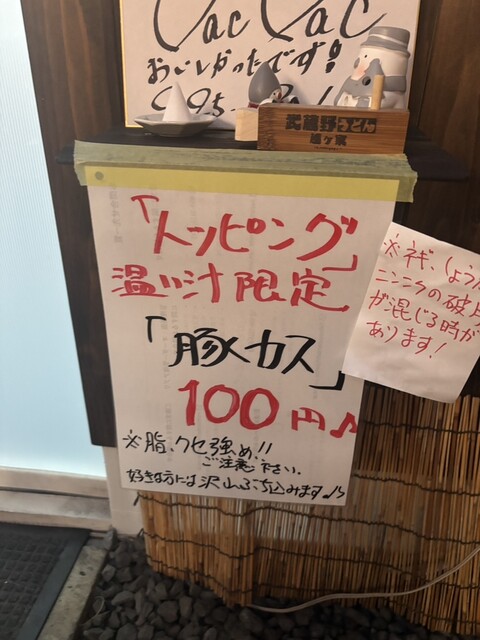 CacCaC
おいしかったです!
武蔵野うどん
「トッピング」
温い汁限定
「豚カス」
100円♪
※脂、クセ強め!!
ご注意下さい。
好きな方には沢山ぶち込みます♪
※ネギ、しょう
ニンニクの破片
が混じる時が
あります!